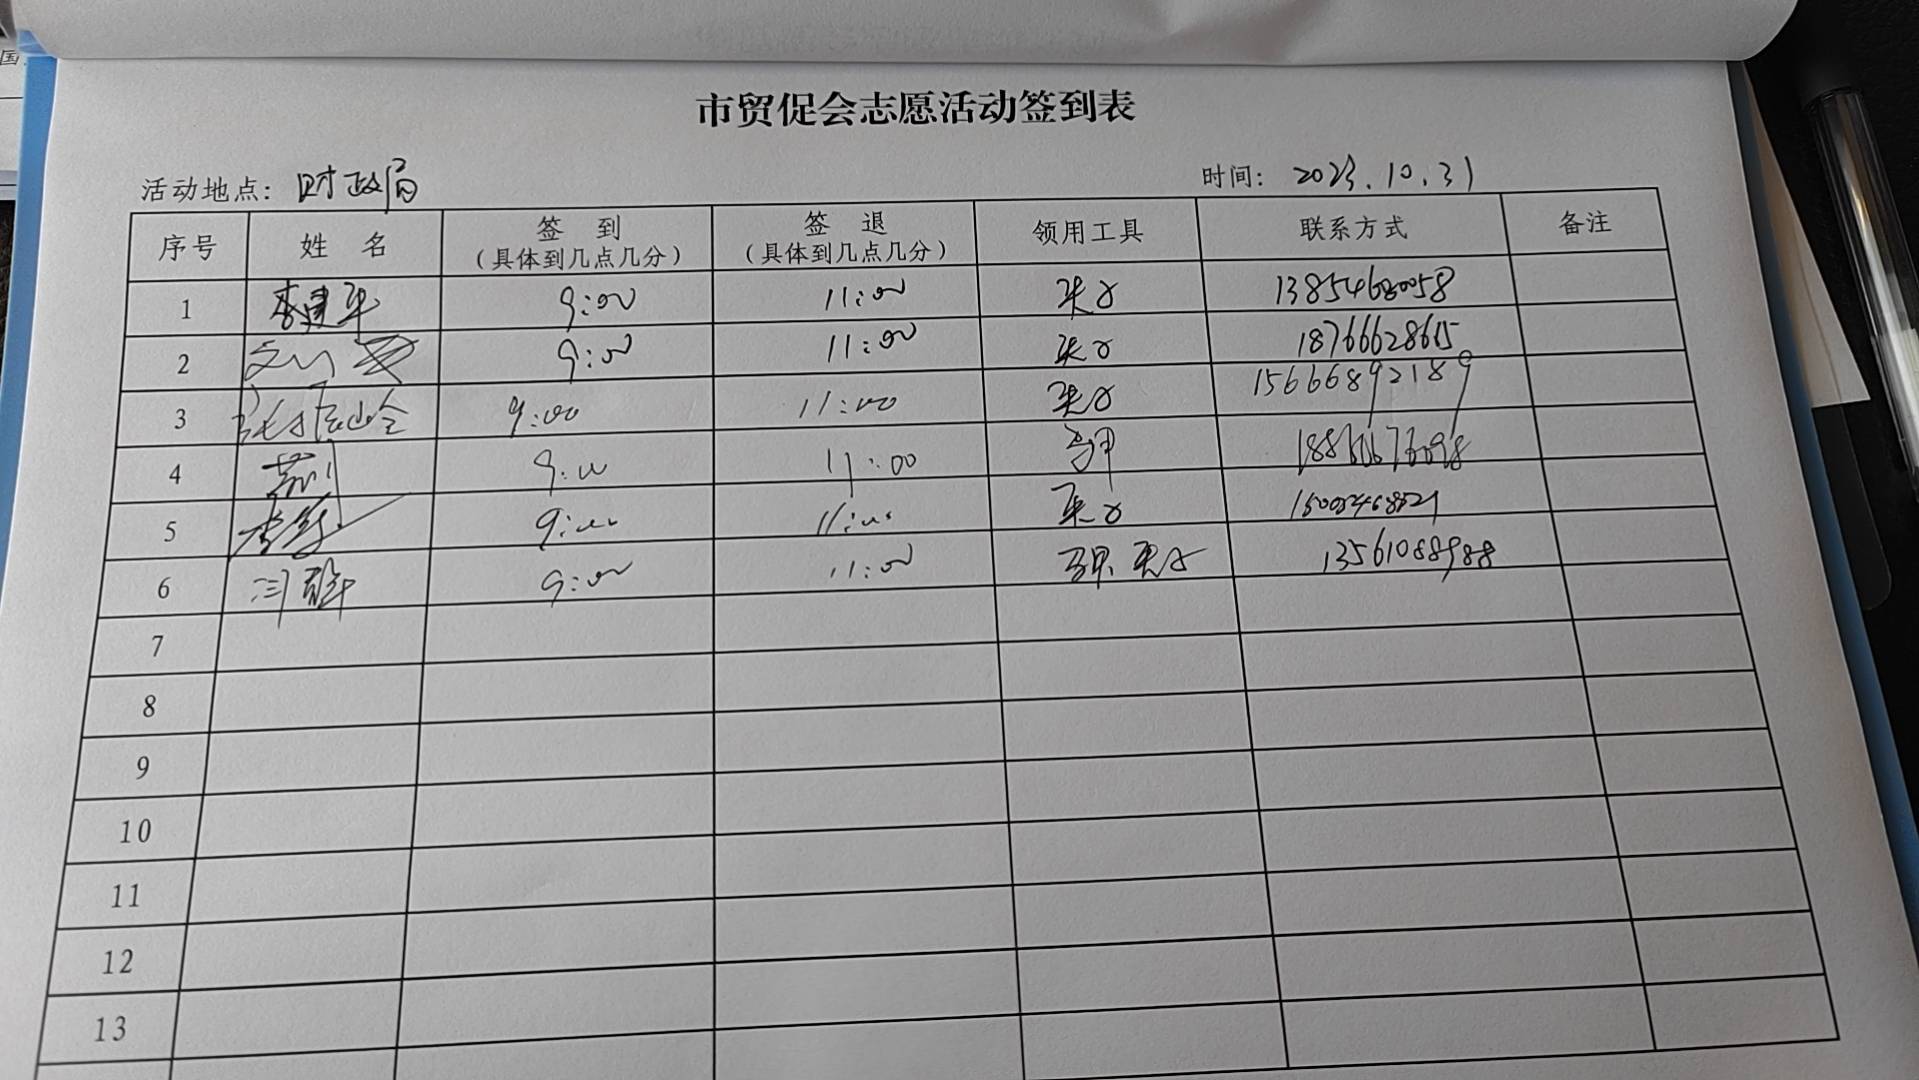 国
市贸促会志愿活动签到表
活动地点: 财政局 时间: 2023.10.31
序号 姓 名 签 到 (具体到几点几分) 签 退 (具体到几点几分) 领用工具 联系方式 备注
1 李建军 9:00 11:00 夹子
2 9:00 11:00 夹子 18766628615
3 9:00 11:00 夹子 15666892189
4 9:00 11:00
5 9:00 11:00 夹子
6 9:00 11:00 夹子 13561088988
7
8
9
10
11
12
13